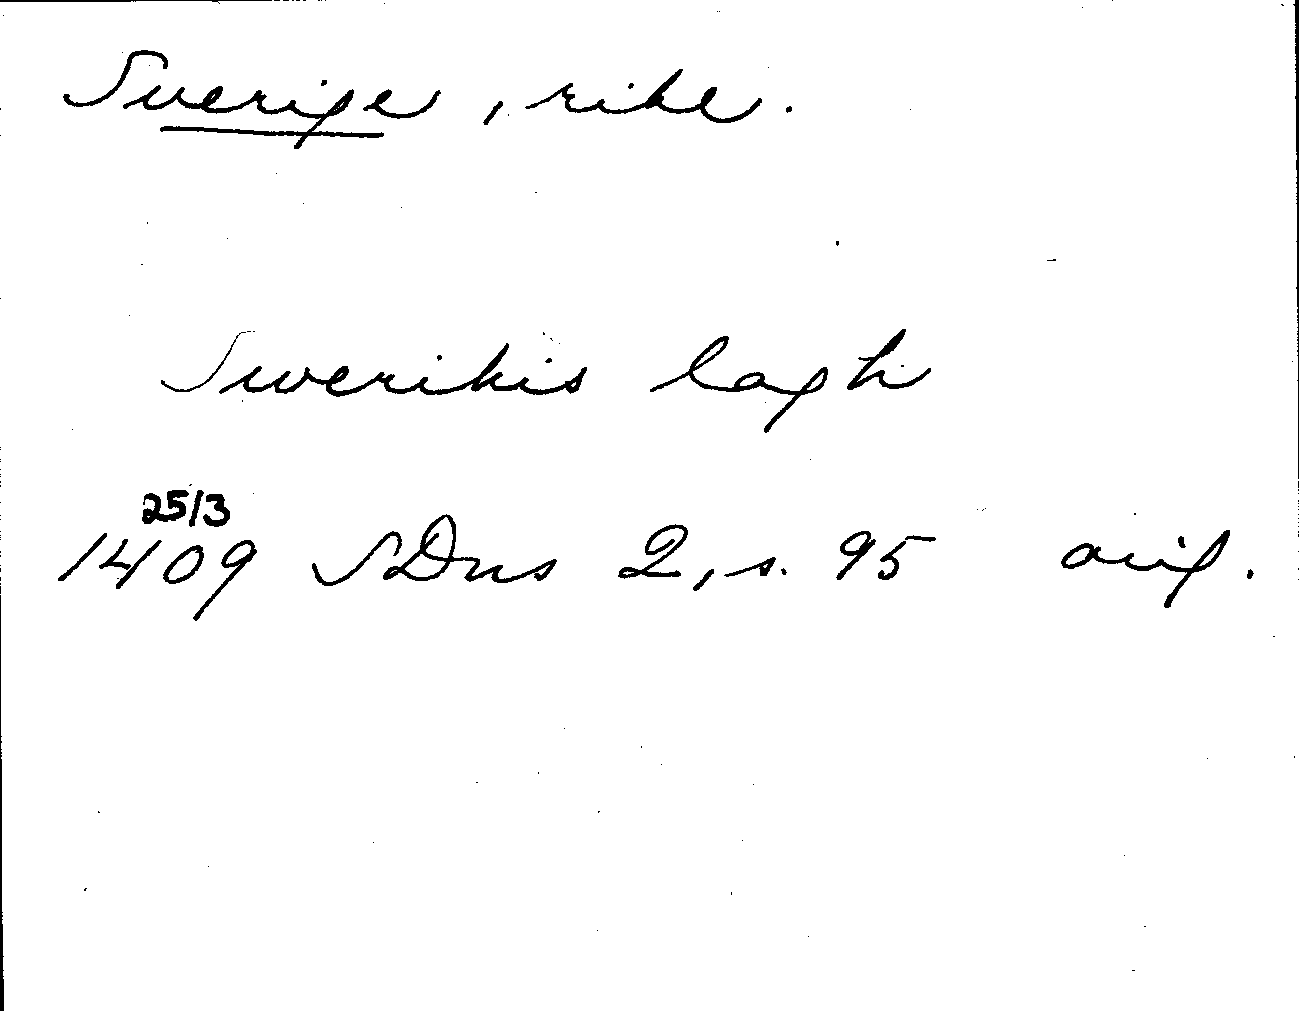 Sverige, rike.
Swerikis lagh
25/3
1409 SDns 2, s. 95 orig.